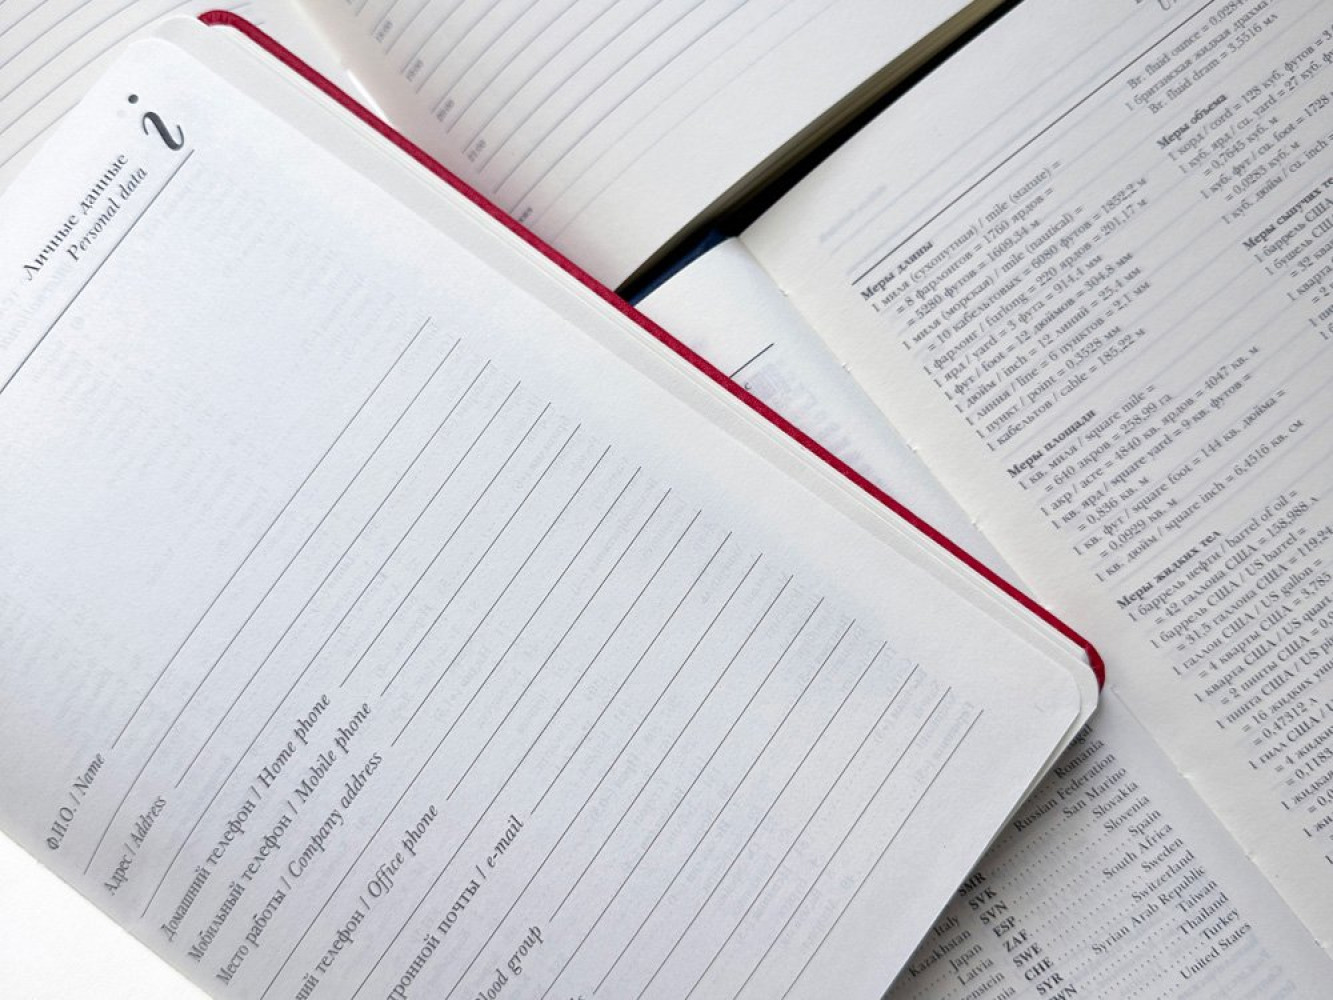 Личные данные
Personal data
i
Ф.И.О. / Name
Адрес / Address
Домашний телефон / Home phone
Мобильный телефон / Mobile phone
Место работы / Company address
телефон / Office phone
почты / e-mail
group
19:00
20:00
21:00
Br. fluid ounce = 0,0284
1 британская жидкая драхма /
Br. fluid dram = 3,5516 мл
Меры объема
1 корд / cord = 128 куб. футов =
1 куб. ярд / cu. yard = 27 куб.
= 0,7645 куб. м
1 куб. фут / cu. foot = 1728
= 0,0283 куб. м
1 куб. дюйм / cu. inch =
Меры сыпучих
1 баррель США
1 бушель США
= 32
1 кварта
Меры длины
1 миля (сухопутная) / mile (statute) =
= 8 фарлонгов = 1760 ярдов =
= 5280 футов = 1609,34 м
1 миля (морская) / mile (nautical) =
= 10 кабельтовых = 6080 футов = 1852,2 м
1 фарлонг / furlong = 220 ярдов = 201,17 м
1 ярд / yard = 3 фута = 914,4 мм
1 фут / foot = 12 дюймов = 304,8 мм
1 дюйм / inch = 12 линий = 25,4 мм
1 линия / line = 6 пунктов = 2,1 мм
1 пункт / point = 0,3528 мм
1 кабельтов / cable = 185,22 м
Меры площади
1 кв. миля / square mile =
= 640 акров = 258,99 га
1 акр / acre = 4840 кв. ярдов = 4047 кв. м
1 кв. ярд / square yard = 9 кв. футов =
= 0,836 кв. м
1 кв. фут / square foot = 144 кв. дюйма =
= 0,0929 кв. м
1 кв. дюйм / square inch = 6,4516 кв. см
Меры жидких тел
1 баррель нефти / barrel of oil =
= 42 галлона США = 158,988 л
1 баррель США / US barrel =
= 31,5 галлона США = 119,24
1 галлон США / US gallon =
= 4 кварты США = 3,785
1 кварта США / US quart
= 2 пинты США =
1 пинта США / US
= 16 жидких
= 0,47312 л
1 гилл США /
= 4
= 0,1183
Romania
Russian Federation
SMR San Marino
SVK Slovakia
SVN Slovenia
ESP Spain
ZAF South Africa
SWE Sweden
CHE Switzerland
SYR Syrian Arab Republic
Taiwan
Thailand
Turkey
United States
Italy
Kazakhstan
Japan
Latvia